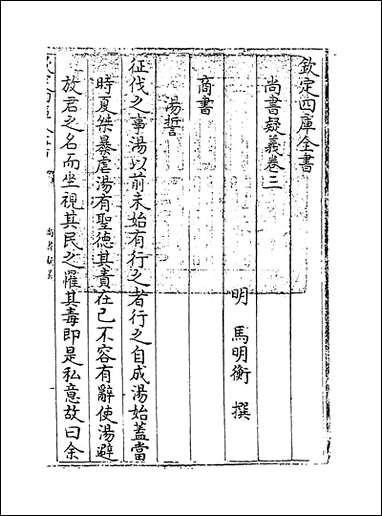 欽定四庫全書
尚書疑義卷三
明 馬明衡 撰
商書
湯誓
征伐之事湯以前未始有行之者行之自成湯始蓋當
時夏桀暴虐湯有聖徳其責在己不容有辭使湯避
放君之名而坐視其民之罹其毒即是私意故曰余
尚書疑義